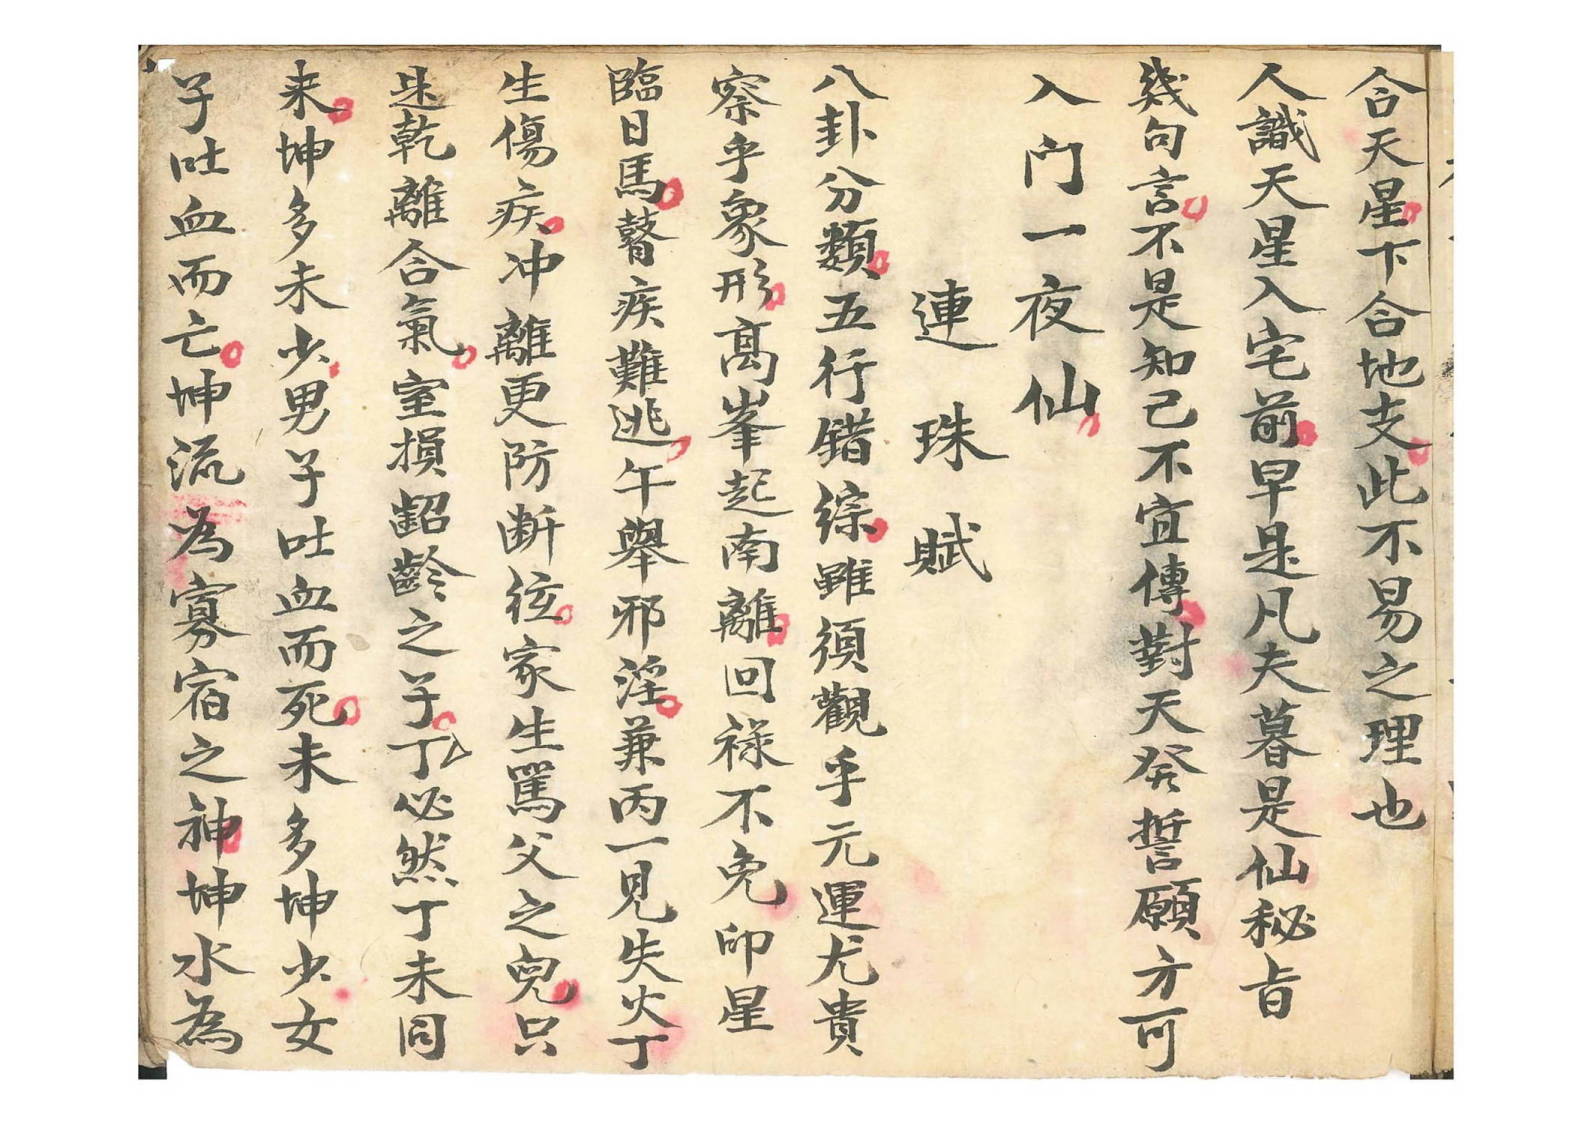 合天星下合地支此不易之理也
人識天星入宅前早是凡夫暮是仙秘旨
幾句言不是知己不宜傳對天癸誓願方可
入门一夜仙
連珠賦
八卦分類五行錯綜雖須觀乎元運尤貴
察乎象形高峯起南離回祿不免印星
臨日馬瞽疾難逃午舉邪淫兼丙一見失火丁
生傷疾冲離更防断弦家生罵父之兒只
迷乾離合氣室損齠齡之子丁必然丁未同
来坤多未少男子吐血而死未多坤少女
子吐血而亡坤流為寡宿之神坤水為